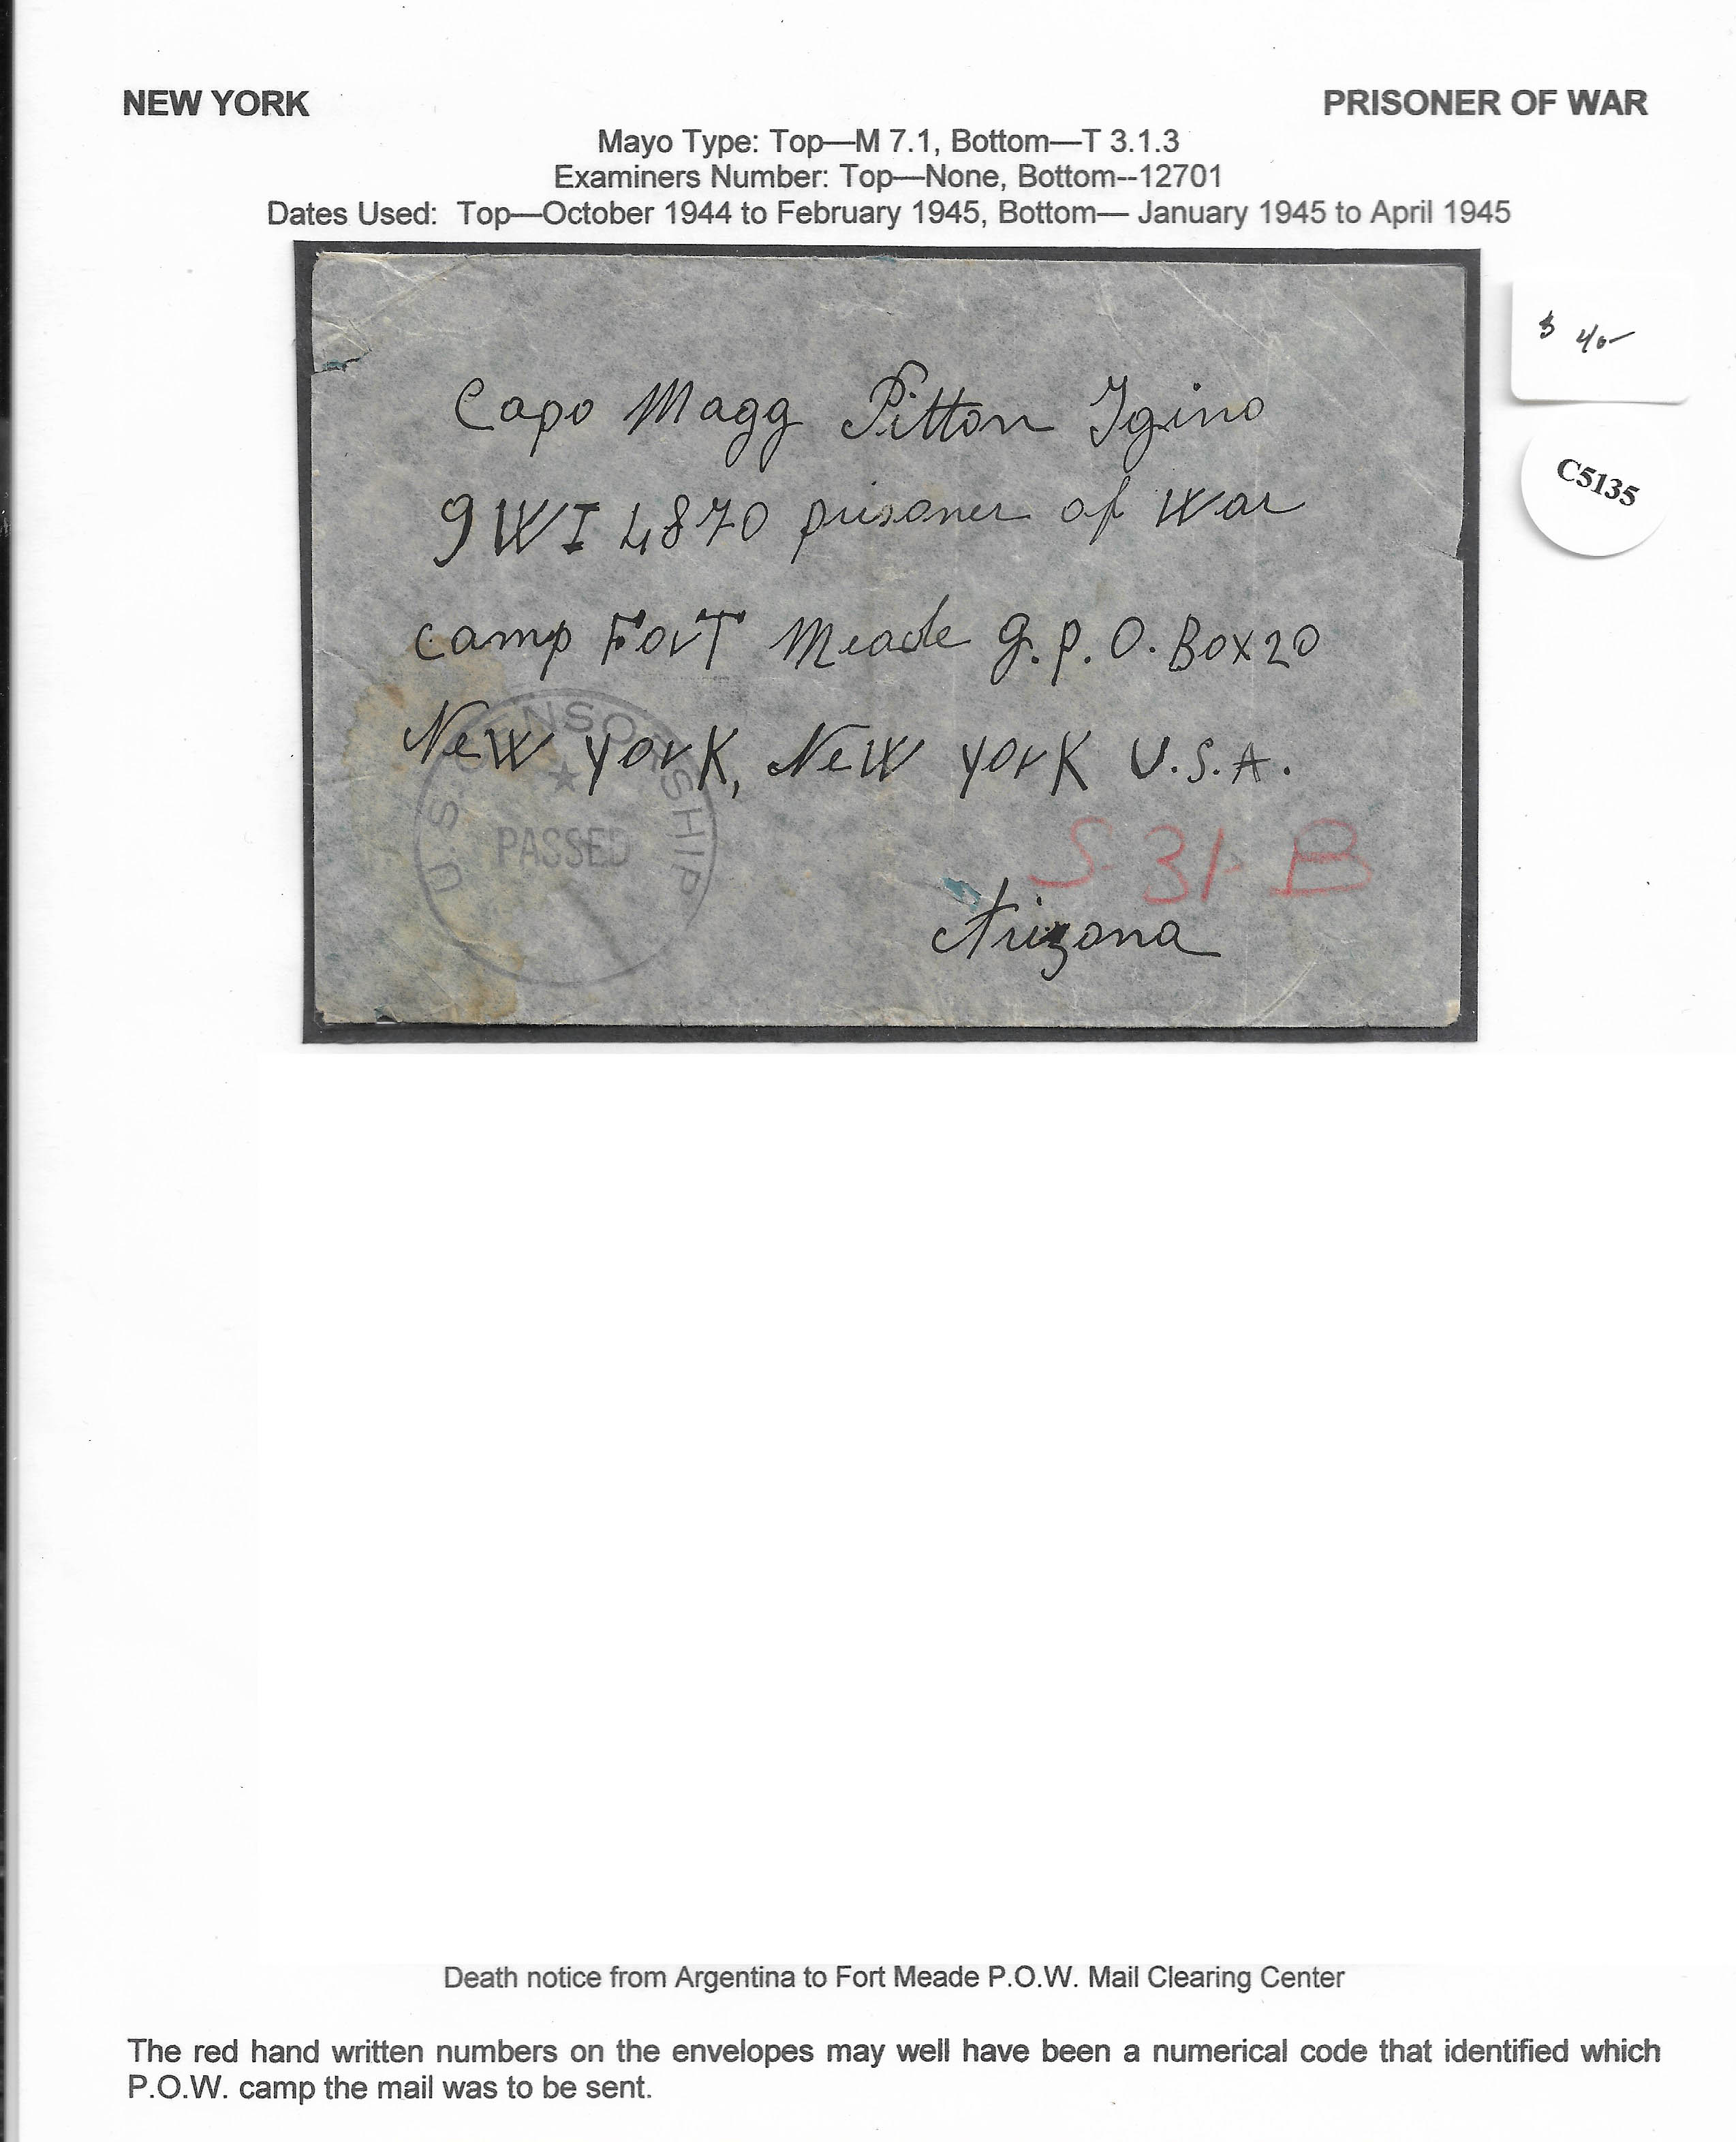 NEW YORK PRISONER OF WAR
Mayo Type: Top—M 7.1, Bottom—T 3.1.3
Examiners Number: Top—None, Bottom--12701
Dates Used: Top—October 1944 to February 1945, Bottom— January 1945 to April 1945
$ 40-
C5135
Capo Magg Pitton Igino
9WI 4870 prisoner of War
camp ForT Meade g.p.O. Box 20
New York, New York U.S.A.
U.S. CENSORSHIP
PASSED
S-31-B
Arizona
Death notice from Argentina to Fort Meade P.O.W. Mail Clearing Center
The red hand written numbers on the envelopes may well have been a numerical code that identified which
P.O.W. camp the mail was to be sent.